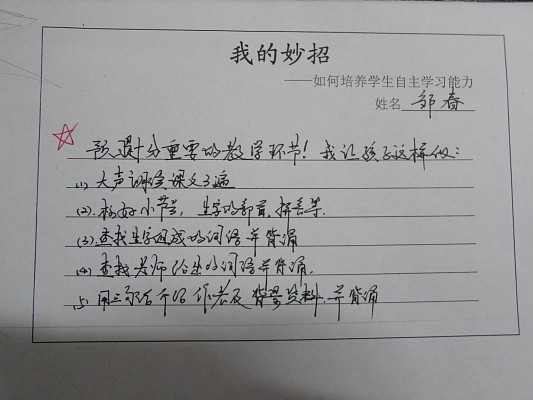 我的妙招
——如何培养学生自主学习能力
姓名 邹春
预习十分重要的教学环节！我让孩子这样做：
(1) 大声朗读课文3遍
(2). 标好小节号，生字的部首，拼音等.
(3). 查找生字组成的词语并背诵
(4) 查找老师给出的词语并背诵.
(5) 用三句话介绍作者及背景资料，并背诵